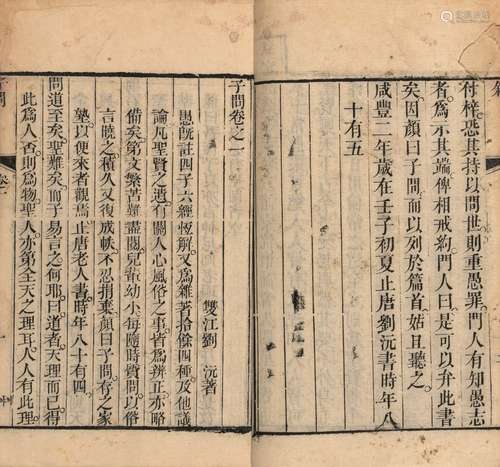 付梓恐其持以問世則重愚罪門人有知愚志
者為示其端俾相戒約門人曰是可以弁此書
矣因顏曰子問而以列於篇首姑且聽之
咸豐二年歲在壬子初夏止唐劉沅書時年八
十有五
子問卷之一
雙江劉 沅著
愚既註四子六經恆解又為雜著拾餘四種及他議
論凡聖賢之遺有關人心風俗之事皆為辨正亦略
備矣第文繁苦難盡閱兒輩幼小每隨時質問以俗
言曉之積久又復成帙不忍捐棄顏曰子問存之家
塾以便來者觀焉止唐老人書時年八十有四
問道至矣聖難矣而子易言之何耶曰道者天理而已得
此為人否則為物聖人亦第全天之理耳人人有此理